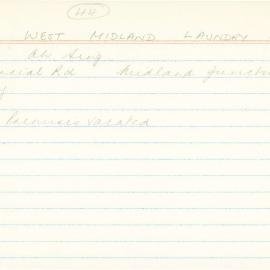 44
WEST MIDLAND LAUNDRY
Ah Sing
ncial Rd Midland Junctio
y
Premises vacated